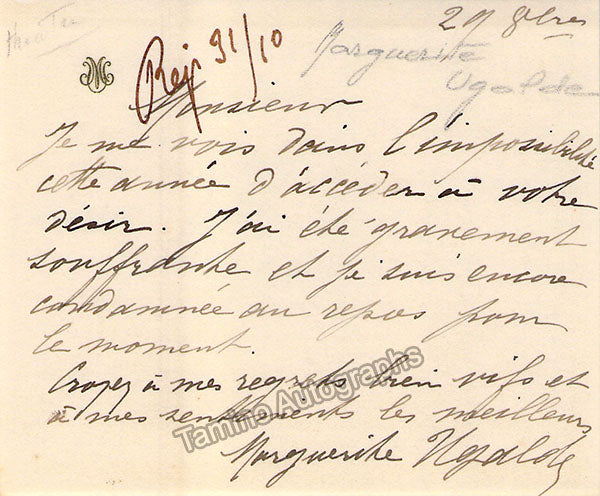 29 8bres
Rep 31/10
Marguerite
Ugalde
Monsieur
Je me vois dans l'impossibilité
cette année d'accéder à votre
désir. J'ai été gravement
souffrante et je suis encore
condamnée au repos pour
le moment.
Croyez à mes regrets bien vifs et
à mes sentiments les meilleurs
Marguerite Ugalde
Tamino Autographs